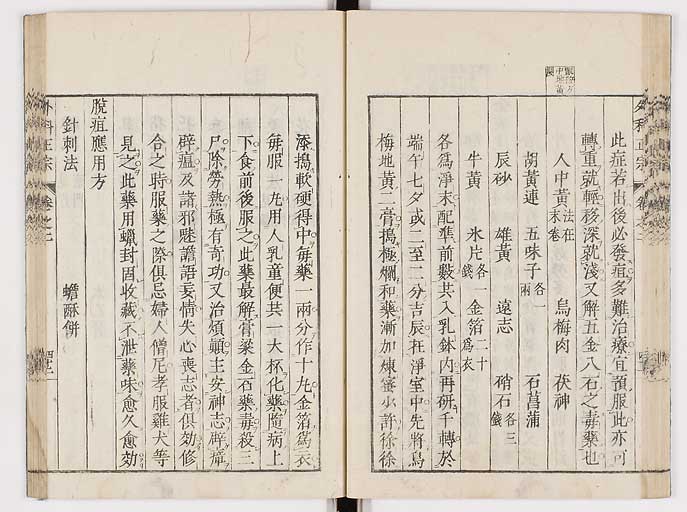 外科正宗 卷之二
此症若出後必發疽多難治療宜預服此亦可
轉重就輕移深就淺又解五金八石之毒藥也
人中黃法在末卷 烏梅肉 茯神
胡黃連 五味子各一兩 石菖蒲
辰砂 雄黃 遠志 硝石各三錢
牛黃 氷片各一錢 金箔二十爲衣
各爲淨末配準前數共入乳鉢内再研千轉於
端午七夕或二至二分吉辰在淨室中先將烏
梅地黃二膏搗極爛和藥漸加煉蜜少許徐徐
添搗軟硬得中每藥一兩分作十丸金箔爲衣
每服一丸用人乳童便共一大杯化藥隨病上
下食前後服之此藥最解膏粱金石藥毒殺三
尸除勞熱極有奇功又治煩顚主安神志辟瘴
辟瘟及諸邪魅譫語妄情失心喪志者俱効修
合之時服藥之際俱忌婦人僧尼孝服雞犬等
見之此藥用蠟封固收藏不泄藥味愈久愈効
脫疽應用方
針刺法 蟾酥餅
外科正宗 卷之二